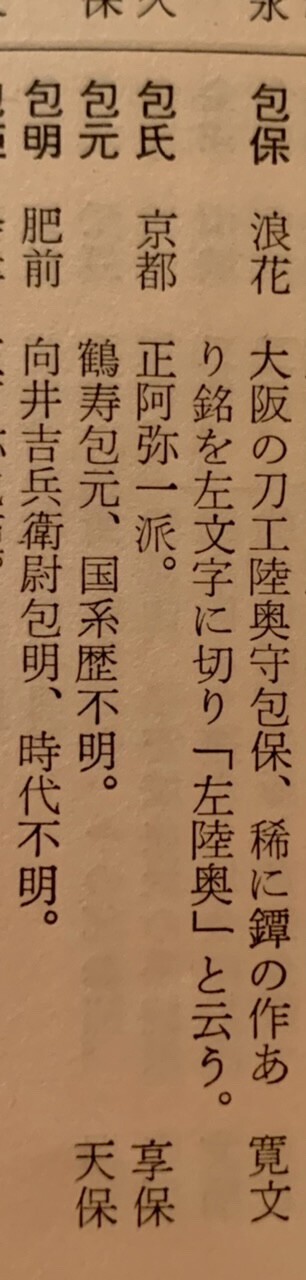 包保　浪花　大阪の刀工陸奥守包保、稀に鐔の作あ　寛文
り銘を左文字に切り「左陸奥」と云う。
包氏　京都　正阿弥一派。　享保
包元　鶴寿包元、国系歴不明。　天保
包明　肥前　向井吉兵衛尉包明、時代不明。